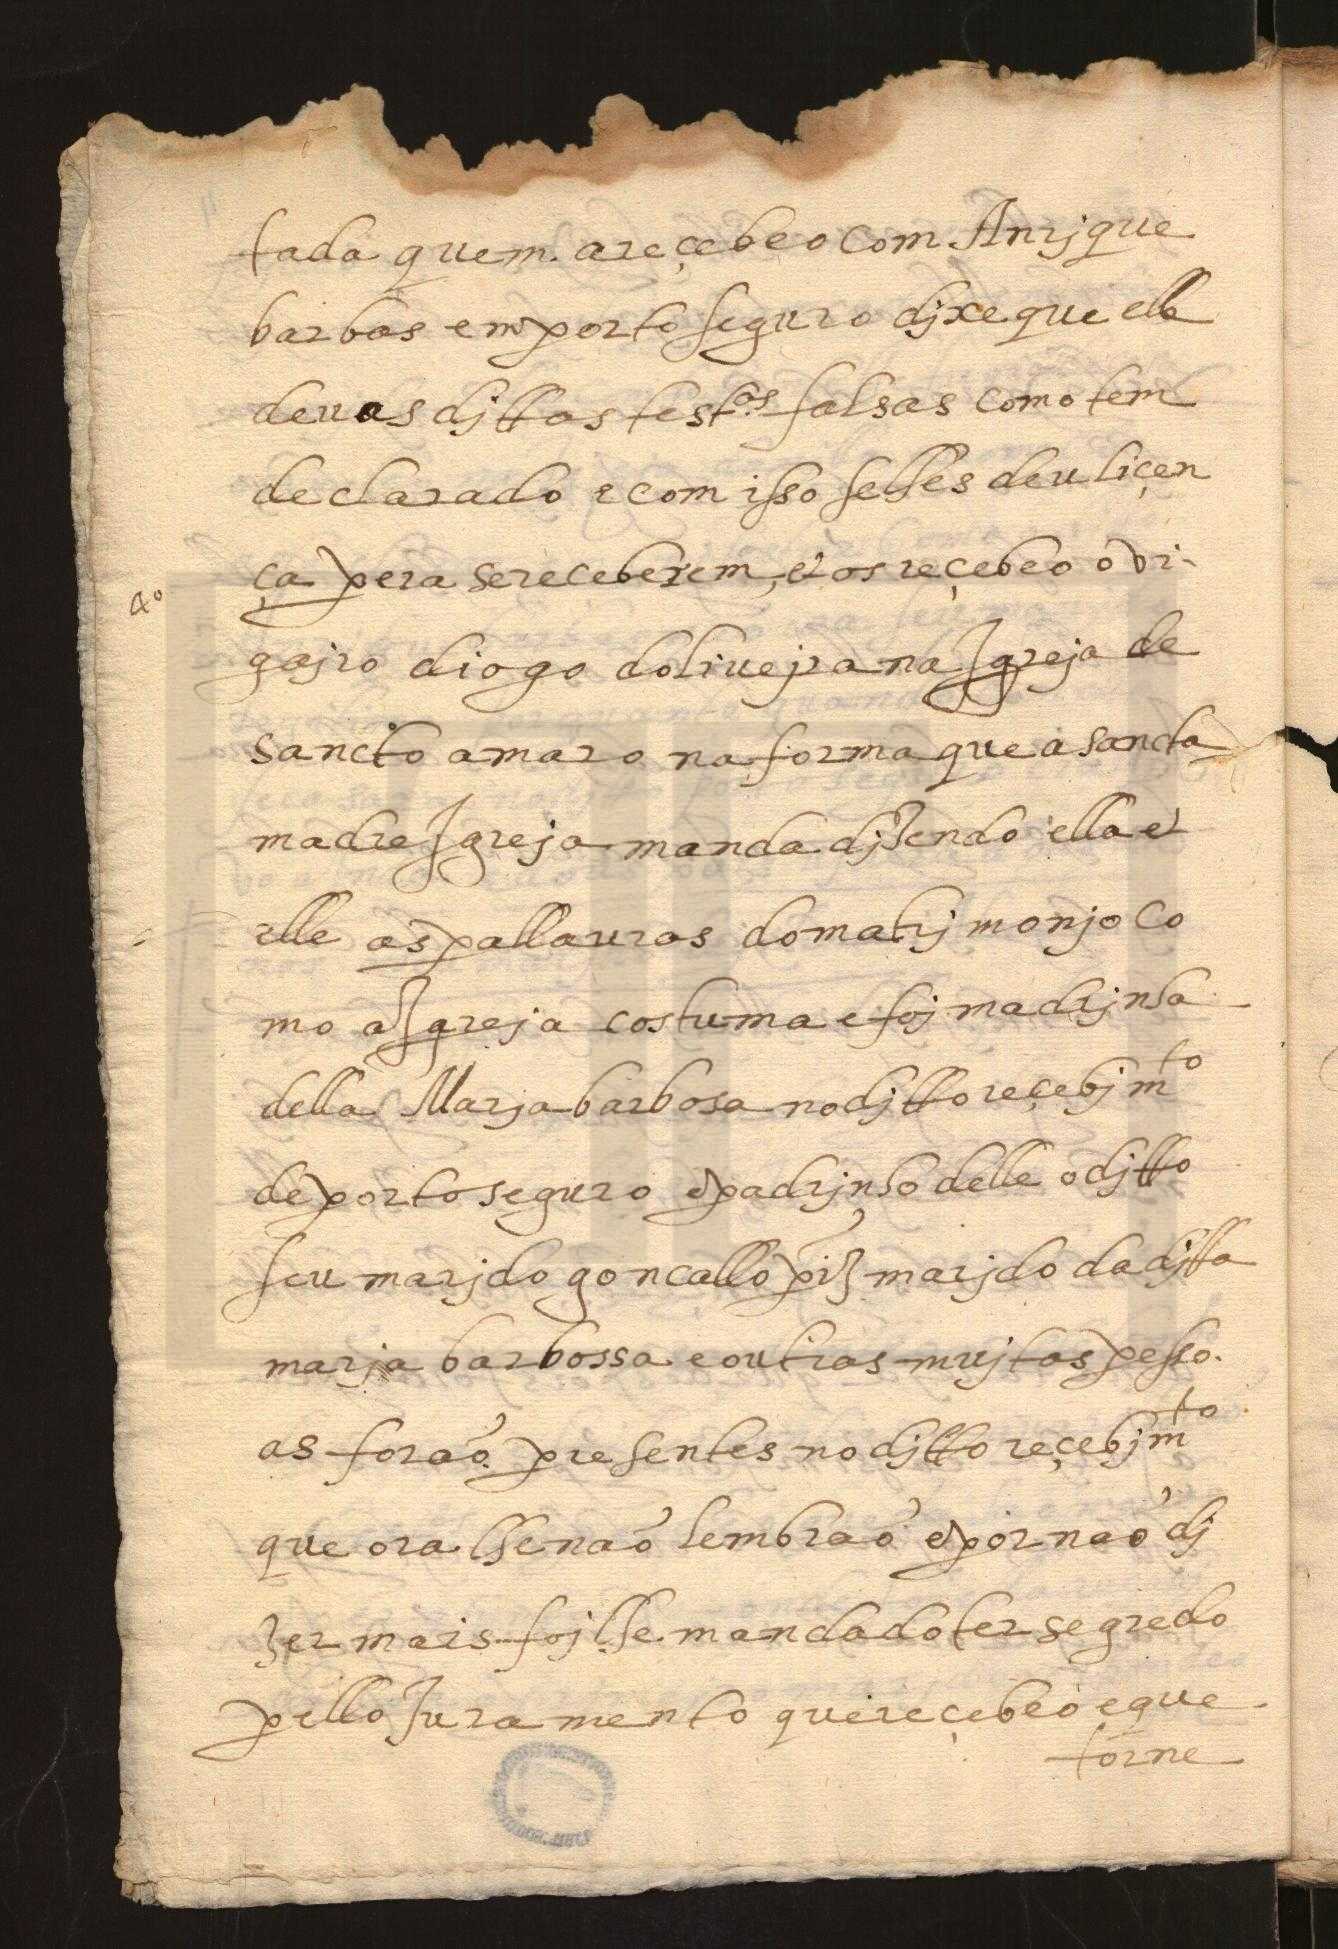 tada quem. a reçebeo com Anrjque
barbas em porto seguro djxe que elle
deu as djttas test.as falsas como tem
declarado e com isso se lhes deu liçen
ça pera se receberem, et os reçebeo o vi-
4o
gajro diogo doliuejra na Jgreja de
sancto amaro na forma que a sancta
madre Jgreja manda djzendo ella et
elle as pallauras do matrjmonjo co
mo a Jgreja costuma e foj madrjnha
della Marja barbosa no djtto reçebjmto
de porto seguro e padrjnho delle o djtto
seu marjdo goncallo piz marjdo da djtta
marja barbossa e outras mujtas pesso.
as forão presentes no djtto reçebjmto
que ora lhe não lembrão e por não dj
zer mais foj lhe mandado ter segredo
pello Juramento que reçebeo e que
torne